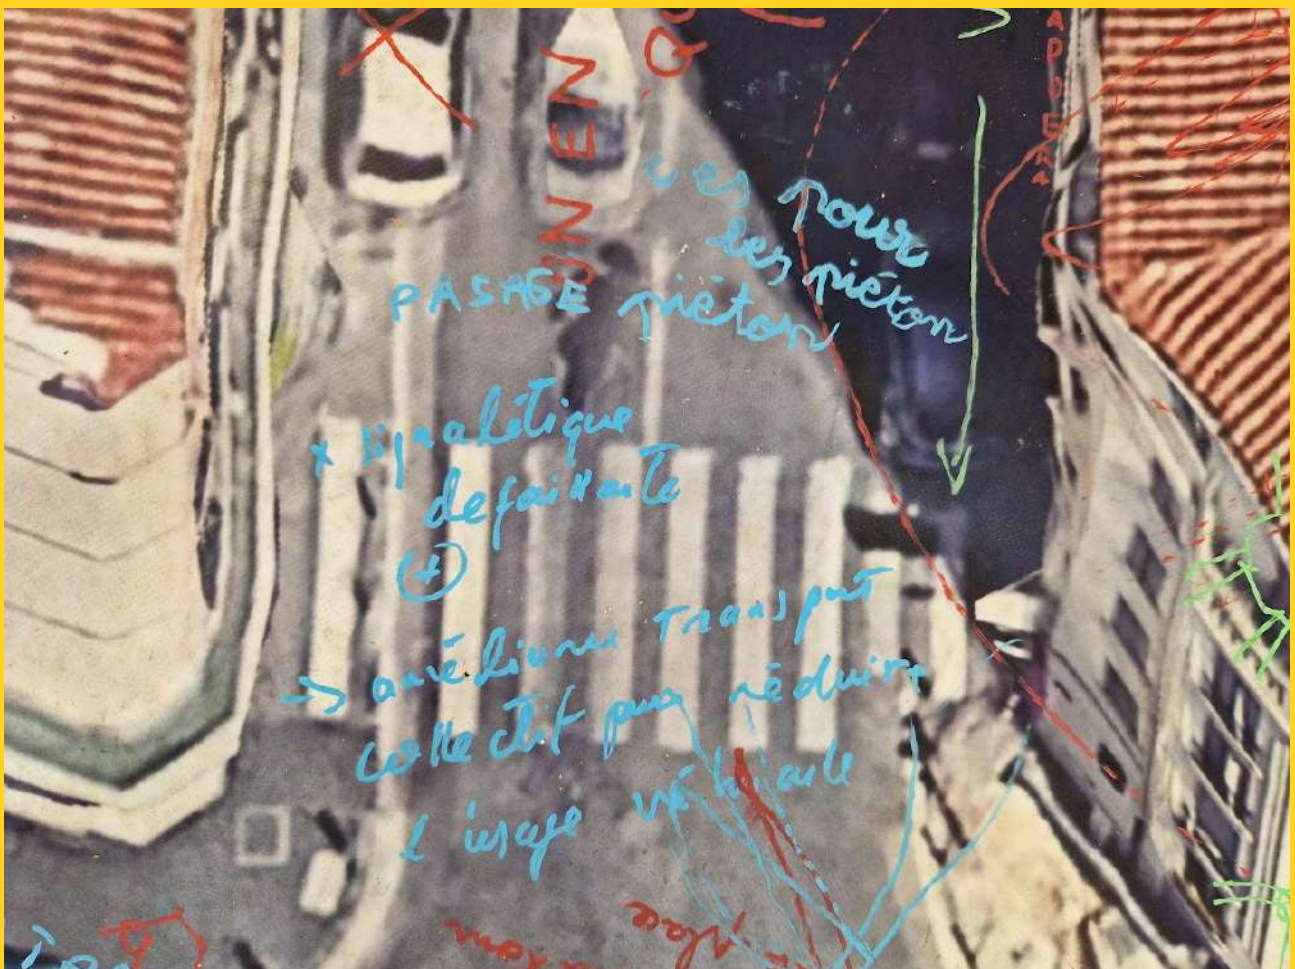 UN EN
ces pour
les piéton
PASAGE piéton
* signalétique
defaillante
(+)
-> améliorer Transport
collectif pour réduire
l'usage véhicule
place